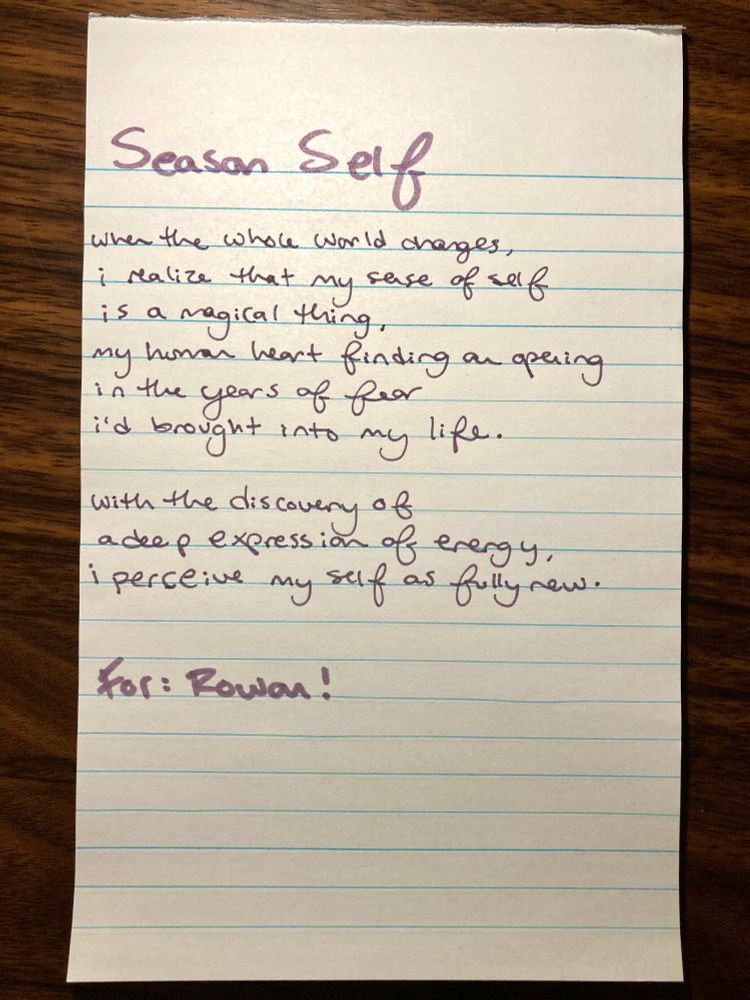 Season Self
when the whole world changes,
i realize that my sense of self
is a magical thing,
my human heart finding an opening
in the years of fear
i'd brought into my life.
with the discovery of
a deep expression of energy,
i perceive my self as fully new.
For: Rowan!